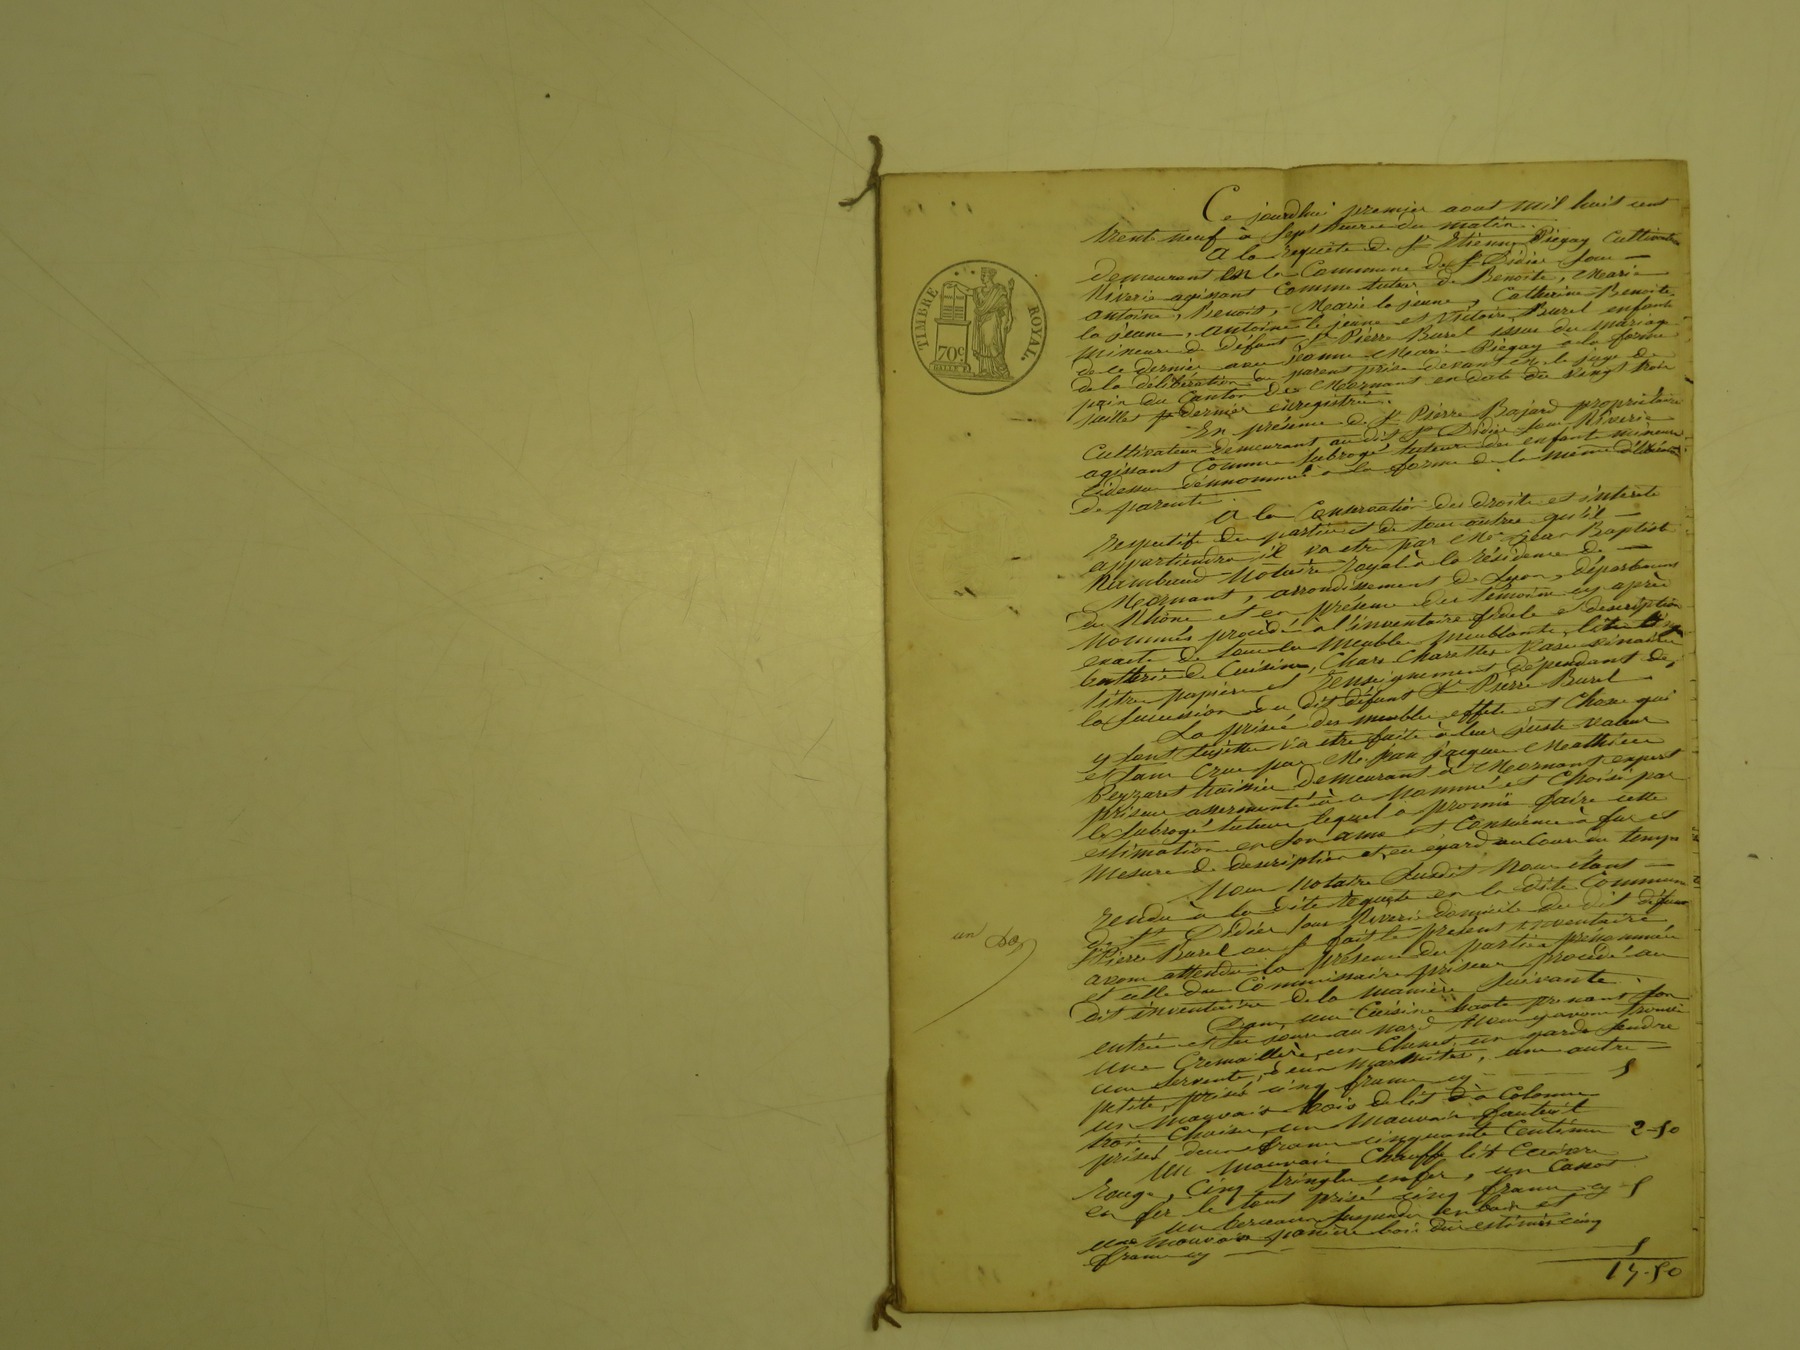 TIMBRE ROYAL.
70c.
Ce jourdhui premier aout mil huit cent
trente neuf à sept heures du matin.
A la requête de Sr Etienne Piegay Cultivateur
demeurant en la Commune de St Didier sous
Riverie agissant Comme tuteur de Benoite, Marie
antoine, Benoit, Marie la jeune, Catherine Benoite
la jeune, antoine le jeune et Victoire Burel enfants
mineurs de défunt Sr Pierre Burel issus du mariage
de ce dernier avec jeanne Marie Piegay à la forme
de la délibération de parents prise devant Mr le juge de
paix du Canton de Mornant en date du vingt trois
juillet dernier enregistrée.
En présence de Sr Pierre Bajard propriétaire
Cultivateur demeurant audit St Didier sous Riverie
agissant Comme subrogé tuteur des enfants mineurs
Cidessus dénommés à la forme de la même délibération
de parents
A la Conservation des droits et intérêts
respectifs des parties et de tous autres qu'il
appartiendra il va etre par Me jean Baptiste
Rambaud Notaire royal à la résidence de
Mornant, arrondissement de Lyon, département
du Rhône et en présence des témoins cy après
Nommés procédé à l'inventaire fidele et description
exacte de tous les Meubles meublants,
batterie de Cuisine, Chars Charettes Vases vinaires
titres papiers et renseignements dépendant de
la succession du dit défunt Sr Pierre Burel
La prisée des meubles effets et Choses qui
y sont sujettes va etre faite à leur juste valeur
et sans Crue par Me jean jacques Mathieu
Peyzaret huissier demeurant à Mornant expert
priseur assermenté à ce Nommé et Choisi par
le subrogé tuteur lequel a promis faire cette
estimation en son ame et Conscience à fur et
Mesure de description et eu égard au Cours du temps
Nous Notaire Susdit Nous étant
rendu à la dite requête en la dite Commune
de St Didier sous Riverie domicile du dit défunt
Pierre Burel où se fait le présent inventaire
avons attendu la présence des parties prénommées
et celle du Commissaire priseur procédé au
dit inventaire de la manière suivante.
Dans une Cuisine haute prenant son
entrée et ses jours au nord Nous y avons trouvé
une Cremaillère, un Chenet, un garde cendre
une servante, deux Marmites, une autre
petite, prisés cinq francs cy 5
un mauvais bois de lit à Colonne
trois Chaises, un Mauvais fauteuil
prisés deux francs cinquante Centimes 2-50
Un mauvais Chauffe lit Cuivre
rouge, Cinq tringles en fer, un
en fer le tout prisé cinq francs cy 5
Un berceau en bois et
une Mauvaise panière bois dur estimés cinq
francs cy 5
17-50
un